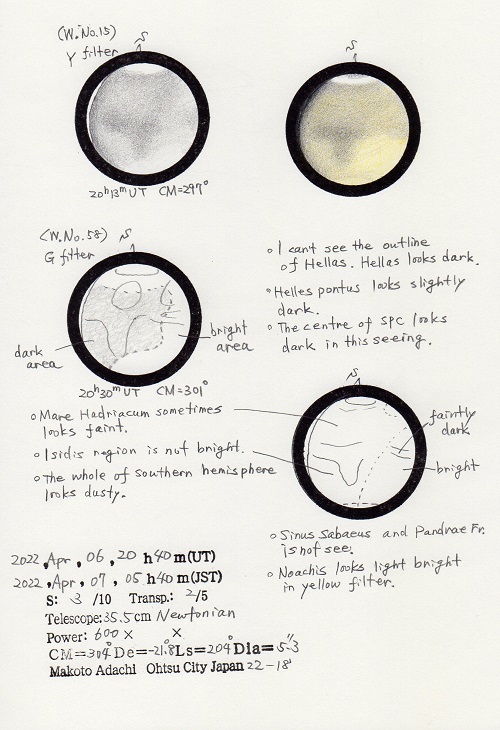 (W.No.15)
Y filter
S
S
20h13mUT CM=297°
(W.No.58)
G filter
S
dark area
bright area
20h30mUT CM=301°
○ I can't see the outline
of Hellas. Hellas looks dark.
○ Helles pontus looks slightly
dark.
○ The centre of SPC looks
dark in this seeing.
○ Mare Hadriacum sometimes
looks faint.
○ Isidis region is not bright.
○ The whole of Southern hemisphere
looks dusty.
S
faintly
dark
bright
○ Sinus Sabaeus and Pandrae Fr.
is not see.
○ Noachis looks light bright
in yellow filter.
2022, Apr, 06, 20 h 40 m (UT)
2022, Apr, 07, 05 h 40 m (JST)
S: 3 /10 Transp.: 2/5
Telescope: 35.5 cm Newtonian
Power: 600 × ×
CM=304° De=-21.8° Ls=204° Dia=5".3
Makoto Adachi Ohtsu City Japan 22-18